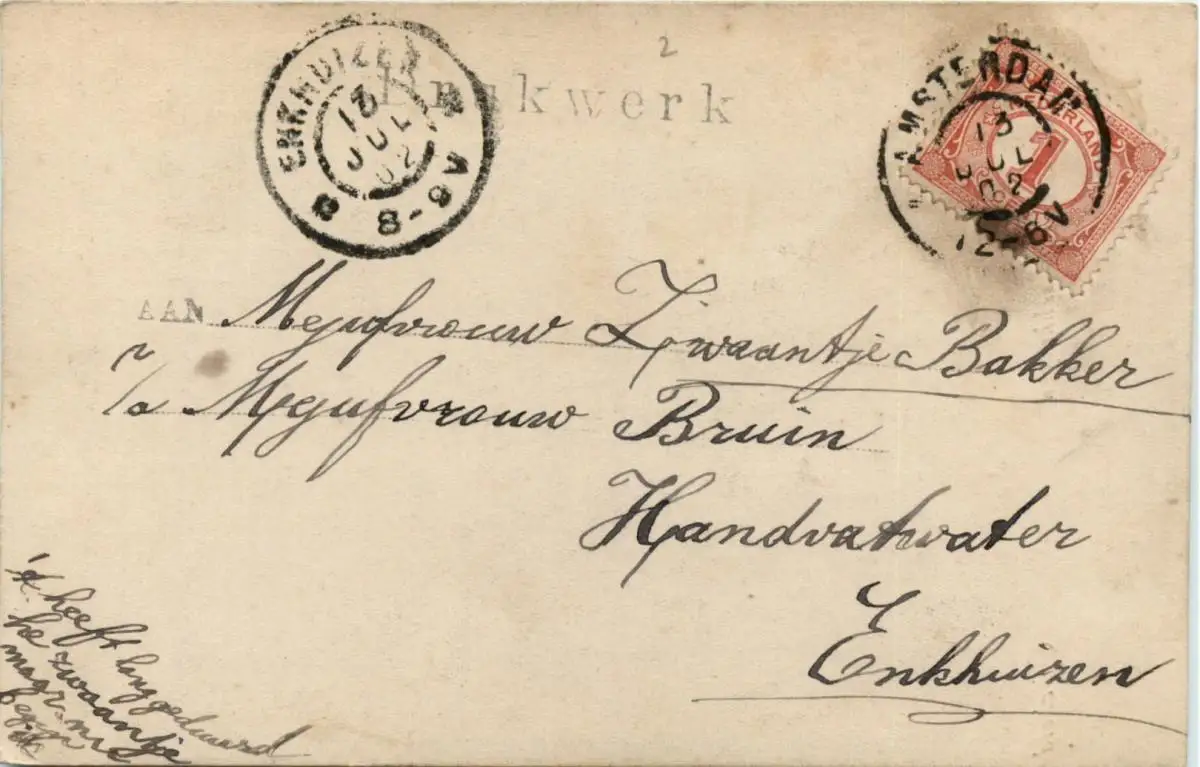 2
Drukwerk
ENKHUIZEN
13
JUL
02
8-9V
AMSTERDAM
13
JUL
02
12-6V
NEDERLAND
1
AAN Mejufvrouw Zwaantje Bakker
p/a Mejufvrouw Bruin
Handvatwater
Enkhuizen
't heeft lang geduurd
he zwaantje
maar nu